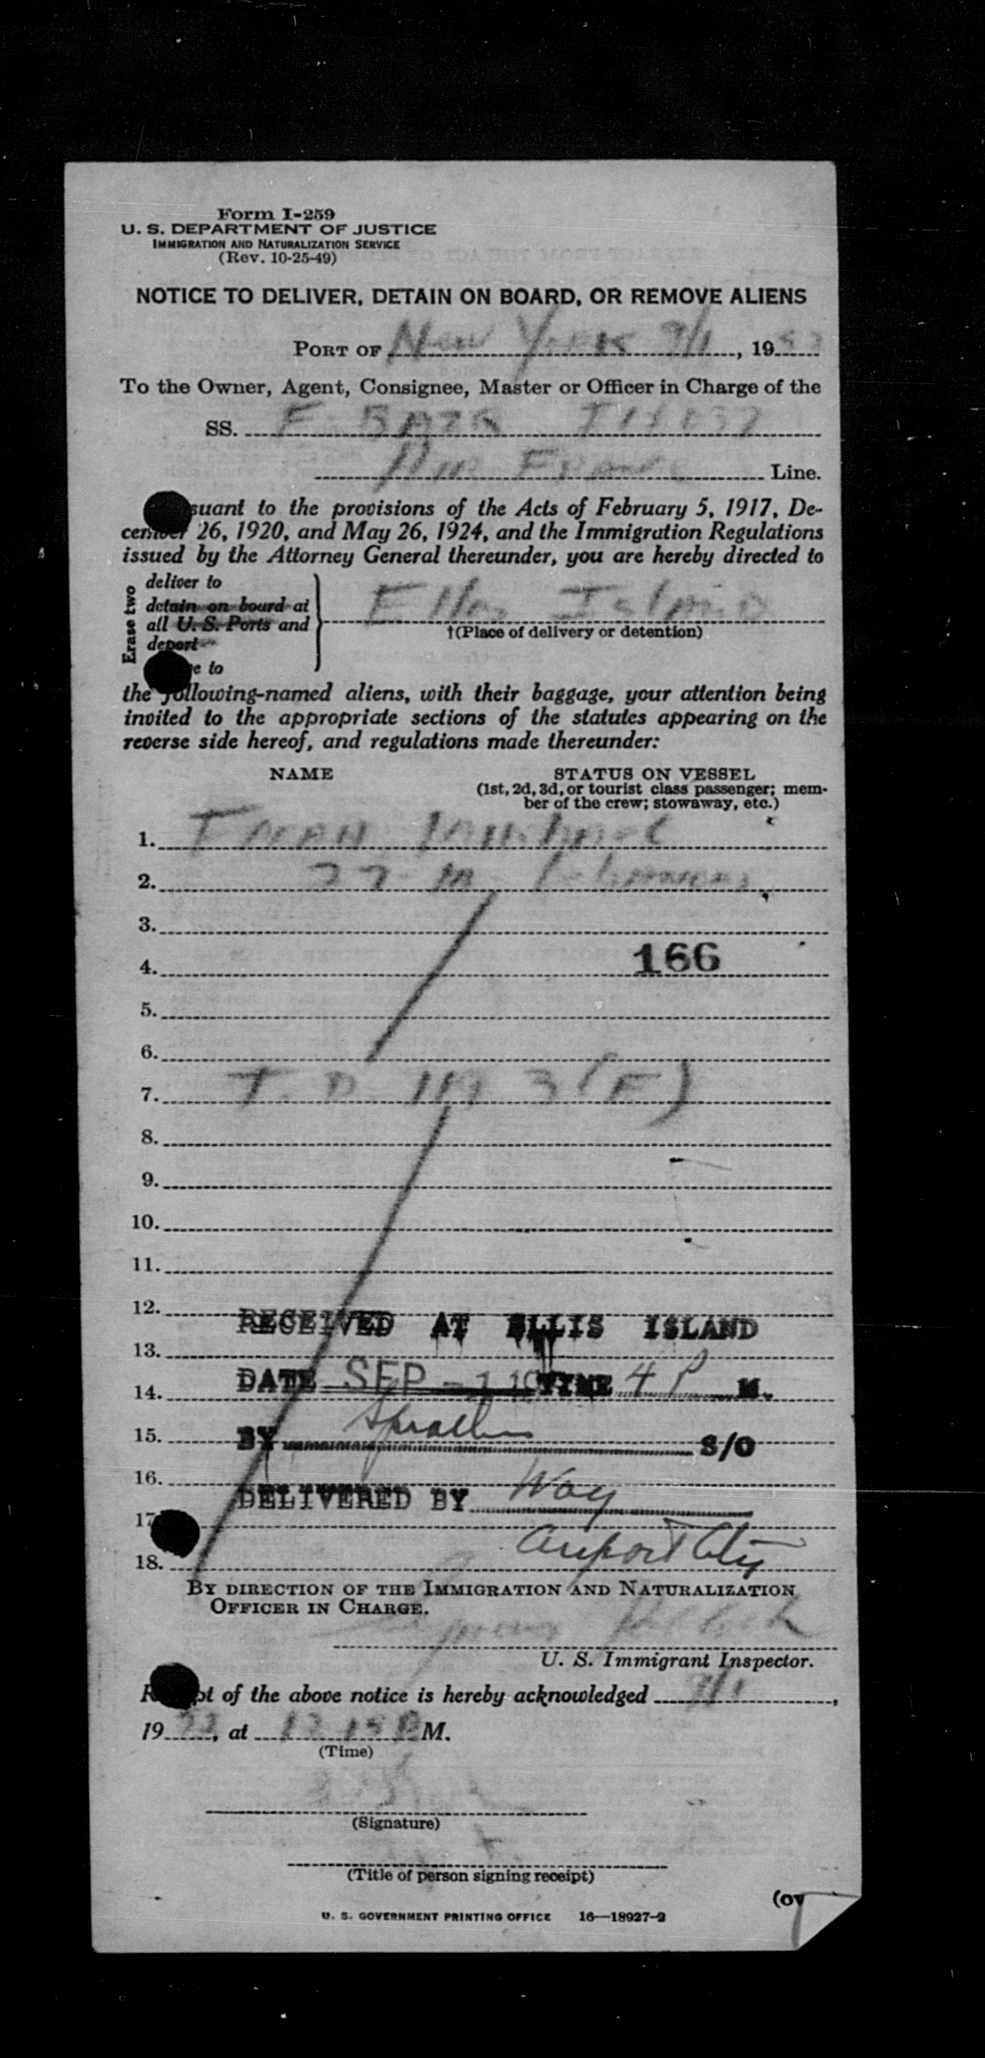 Form I-259
U. S. DEPARTMENT OF JUSTICE
IMMIGRATION AND NATURALIZATION SERVICE
(Rev. 10-25-49)
NOTICE TO DELIVER, DETAIN ON BOARD, OR REMOVE ALIENS
PORT OF New York 9/1, 19
To the Owner, Agent, Consignee, Master or Officer in Charge of the
SS. F BAZQ
Air France Line.
suant to the provisions of the Acts of February 5, 1917, De-
cember 26, 1920, and May 26, 1924, and the Immigration Regulations
issued by the Attorney General thereunder, you are hereby directed to
Erase two
deliver to
detain on board at
all U. S. Ports and
deport
e to
Ellis Island
†(Place of delivery or detention)
the following-named aliens, with their baggage, your attention being
invited to the appropriate sections of the statutes appearing on the
reverse side hereof, and regulations made thereunder:
NAME STATUS ON VESSEL
(1st, 2d, 3d, or tourist class passenger; mem-
ber of the crew; stowaway, etc.)
1.
2. 22 - m -
3.
4. 166
5.
6.
7. T. D. 119 3 (F)
8.
9.
10.
11.
12.
RECEIVED AT ELLIS ISLAND
13.
DATE SEP - 1 TIME 4 P M.
14.
15.
BY S/O
16.
DELIVERED BY Way
17
Airport City
18.
BY DIRECTION OF THE IMMIGRATION AND NATURALIZATION
OFFICER IN CHARGE.
U. S. Immigrant Inspector.
R pt of the above notice is hereby acknowledged 9/1,
19, at 12 15 P M.
(Time)
(Signature)
(Title of person signing receipt)
(ov
U. S. GOVERNMENT PRINTING OFFICE 16—18927-2